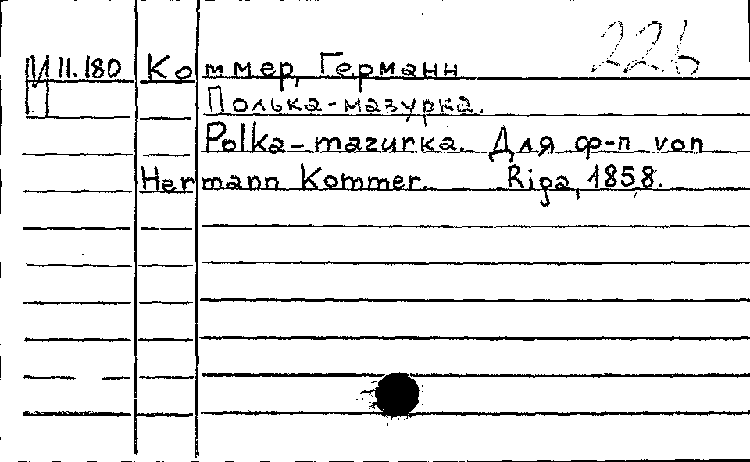 226
И 11.180 Коммер, Германн
П Полька-мазурка.
Polka-mazurka. Для ф-п von
Hermann Kommer. Riga, 1858.